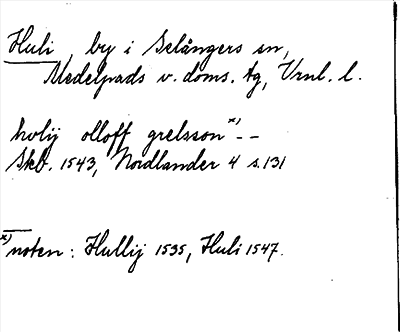 Huli, by i Selångers sn,
Medelpads v. doms. tg, Vrnl. l.
hvlij olloff grelsson x) - -
Skb. 1543, Nordlander 4 s. 131
x) noten: Hullij 1535, Huli 1547.